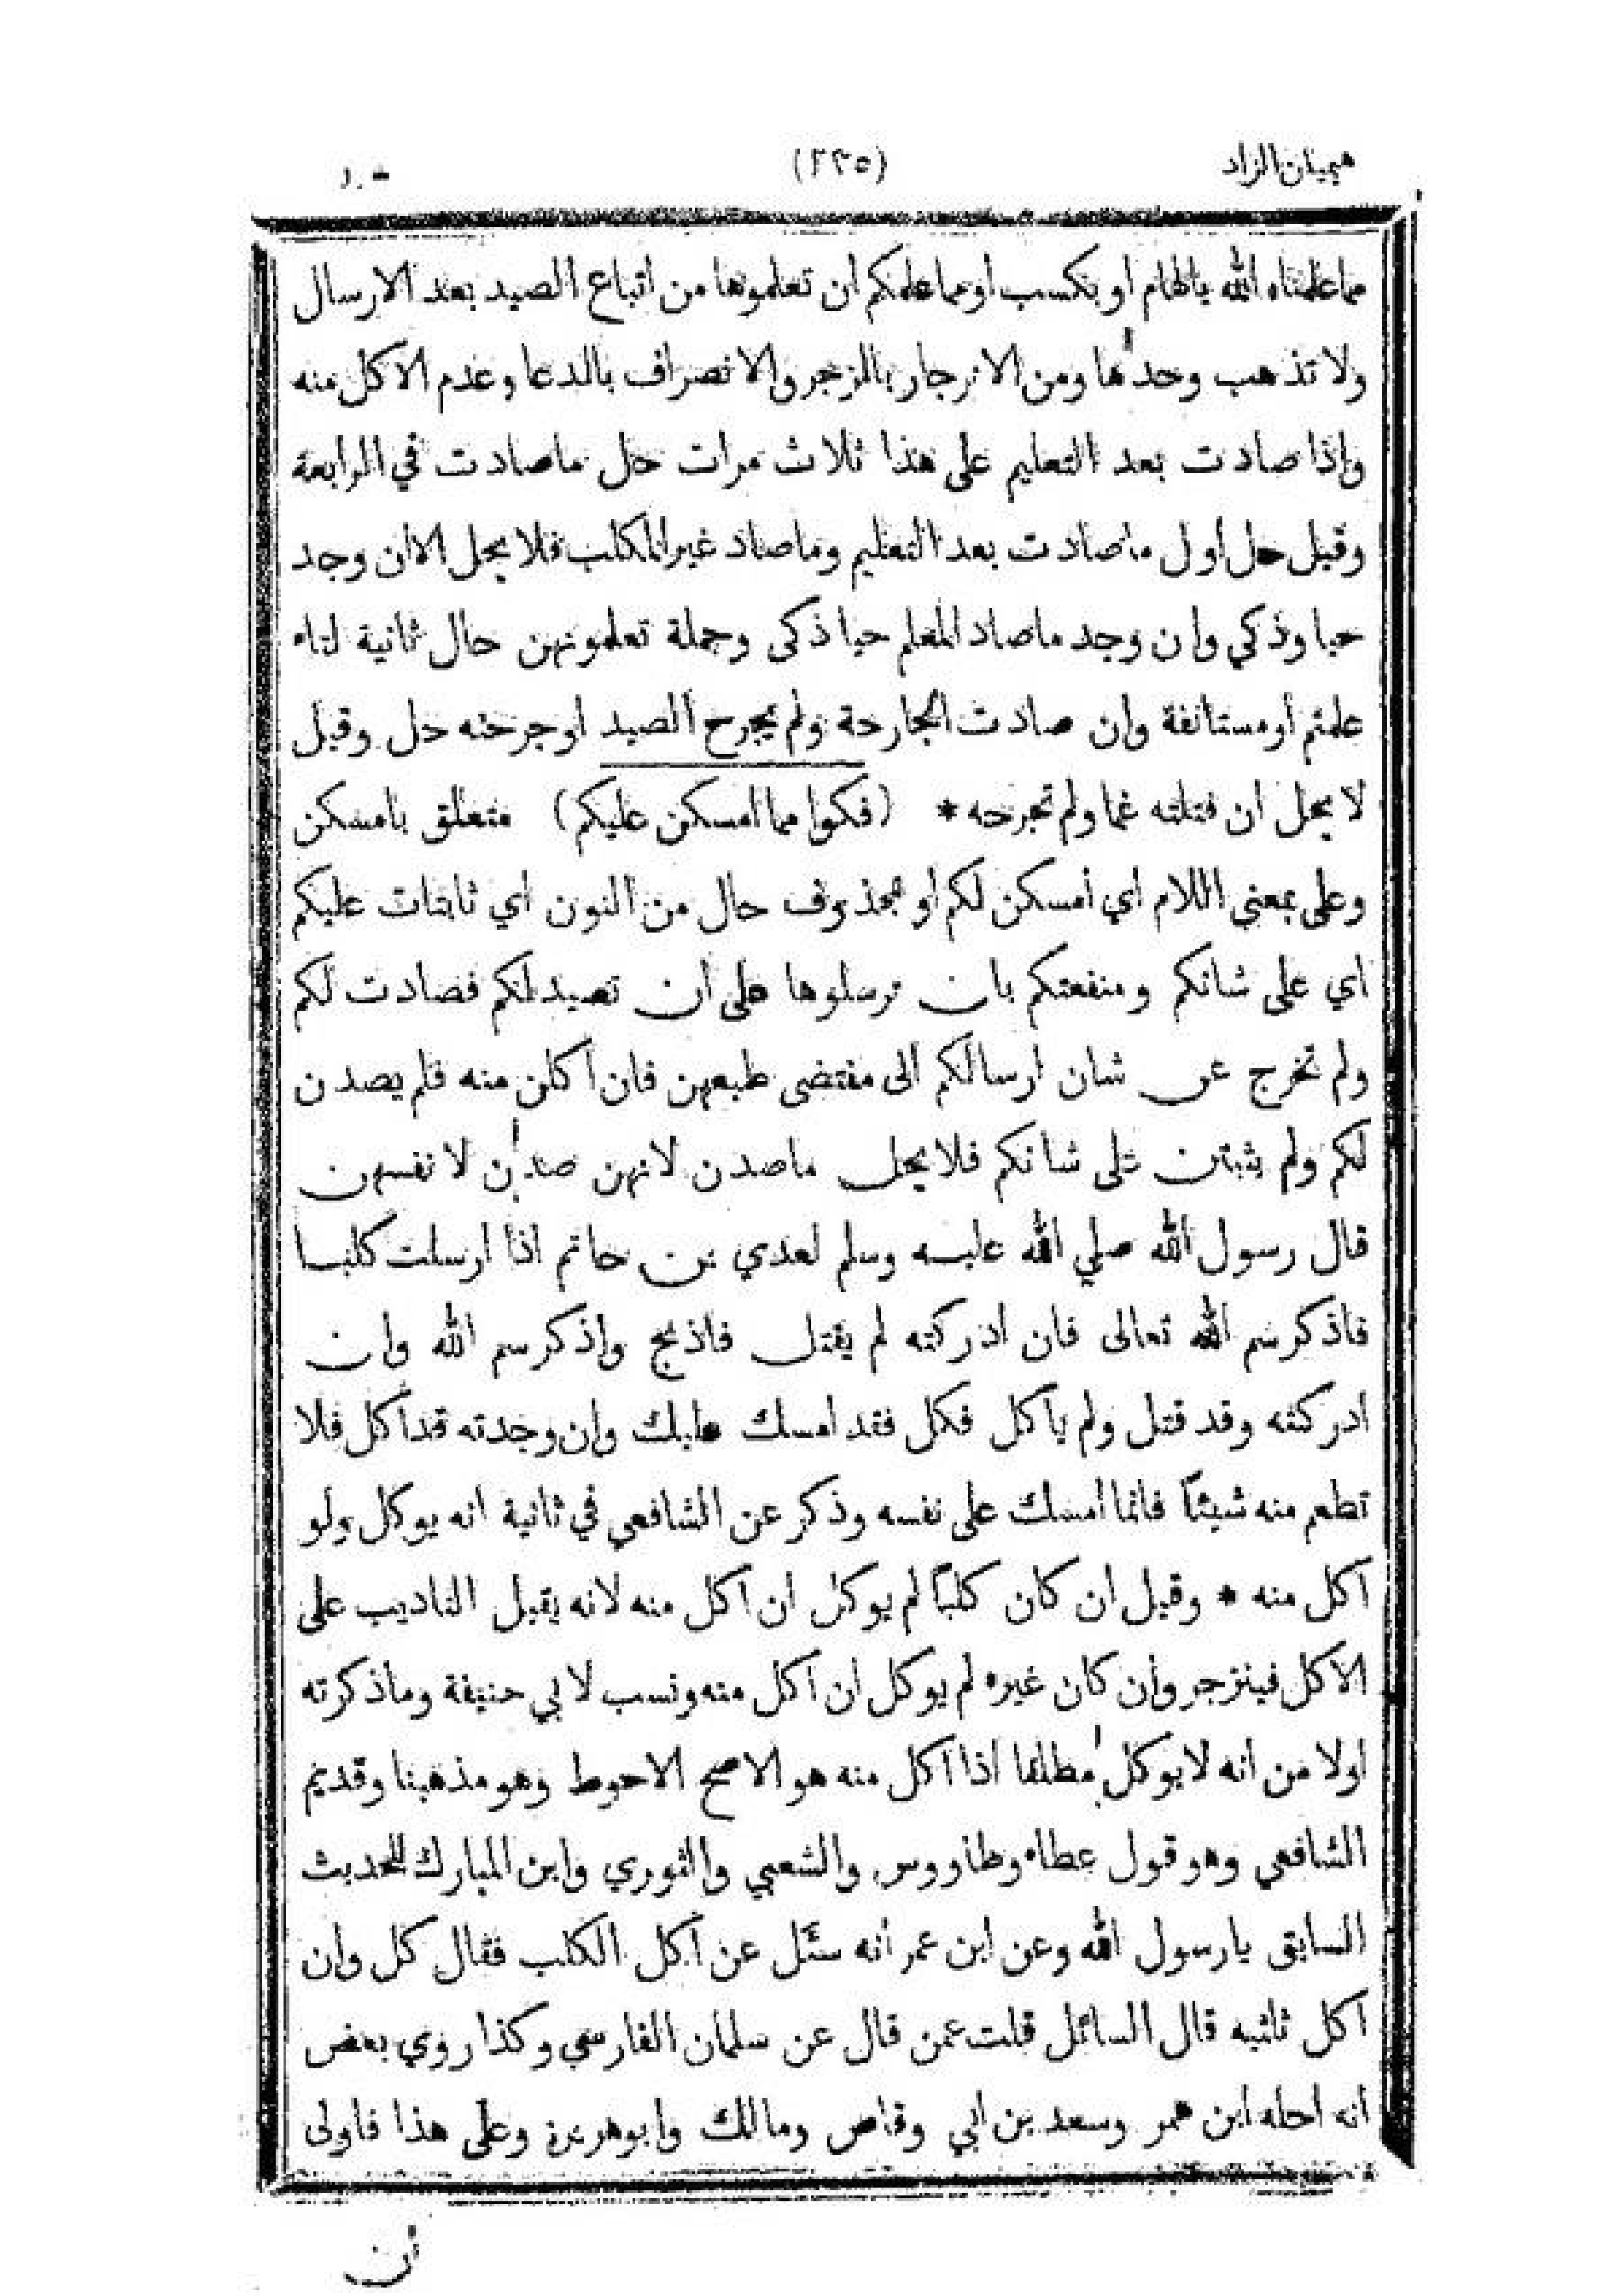 هيميان الزاد (٢٢٥)
مما علمناه الله بالهام او بكسب أو مما علمكم ان تعلموها من اتباع الصيد بعد الارسال
ولا تذهب وحدها ومن الانزجار بالزجر والانصراف بالدعا وعدم الاكل منه
واذا صادت بعد التعليم على هذا ثلاث مرات حل ماصادت في الرابعة
وقيل حل اول ماصادت بعد التعليم وماصاد غير المكلب فلا يحل الا ان وجد
حيا وذكي وان وجد ماصاد المعلم حيا ذكى وجملة تعلمونهن حال ثانية لتاء
علمتم او مستانفة وان صادت الجارحة ولم يجرح الصيد او جرحته حل وقيل
لا يحل ان قتلته غما ولم تجرحه * (فكلوا مما امسكن عليكم) متعلق بامسكن
وعلى بمعنى اللام اي أمسكن لكم او بمحذوف حال من النون اي ثابتات عليكم
اي على شانكم ومنفعتكم بان ترسلوها على أن تصيد لكم فصادت لكم
ولم تخرج عن شان ارسالكم الى مقتضى طبعهن فان اكلن منه فلم يصدن
لكم ولم يثبتن على شانكم فلا يحل ماصدن لانهن صدن لانفسهن
قال رسول الله صلي الله عليه وسلم لعدي بن حاتم اذا ارسلت كلبا
فاذكر سم الله تعالى فان ادركته لم يقتل فاذبح واذكر سم الله وان
ادركته وقد قتل ولم يأكل فكل فقد امسك عليك وان وجدته قد أكل فلا
تطعم منه شيئا فانما أمسك على نفسه وذكر عن الشافعي في ثانية انه يوكل ولو
أكل منه * وقيل ان كان كلبا لم يوكل ان أكل منه لانه يقبل التاديب على
الأكل فينزجر وأن كان غيره لم يوكل ان أكل منه ونسب لابي حنيفة وماذكرته
اولا من انه لا يوكل مطلقا اذا أكل منه هو الاصح الاحوط وهو مذهبنا وقديم
الشافعي وهو قول عطاء وطاووس والشعبي والثوري وابن المبارك للحديث
السابق يارسول الله وعن ابن عمر أنه سئل عن أكل الكلب فقال كل وان
اكل ثلثيه قال السائل قلت عمن قال عن سلمان الفارسي وكذا روي بعض
انه احله ابن عمر وسعد بن ابي وقاص ومالك وابوهريرة وعلى هذا فاولى
أن